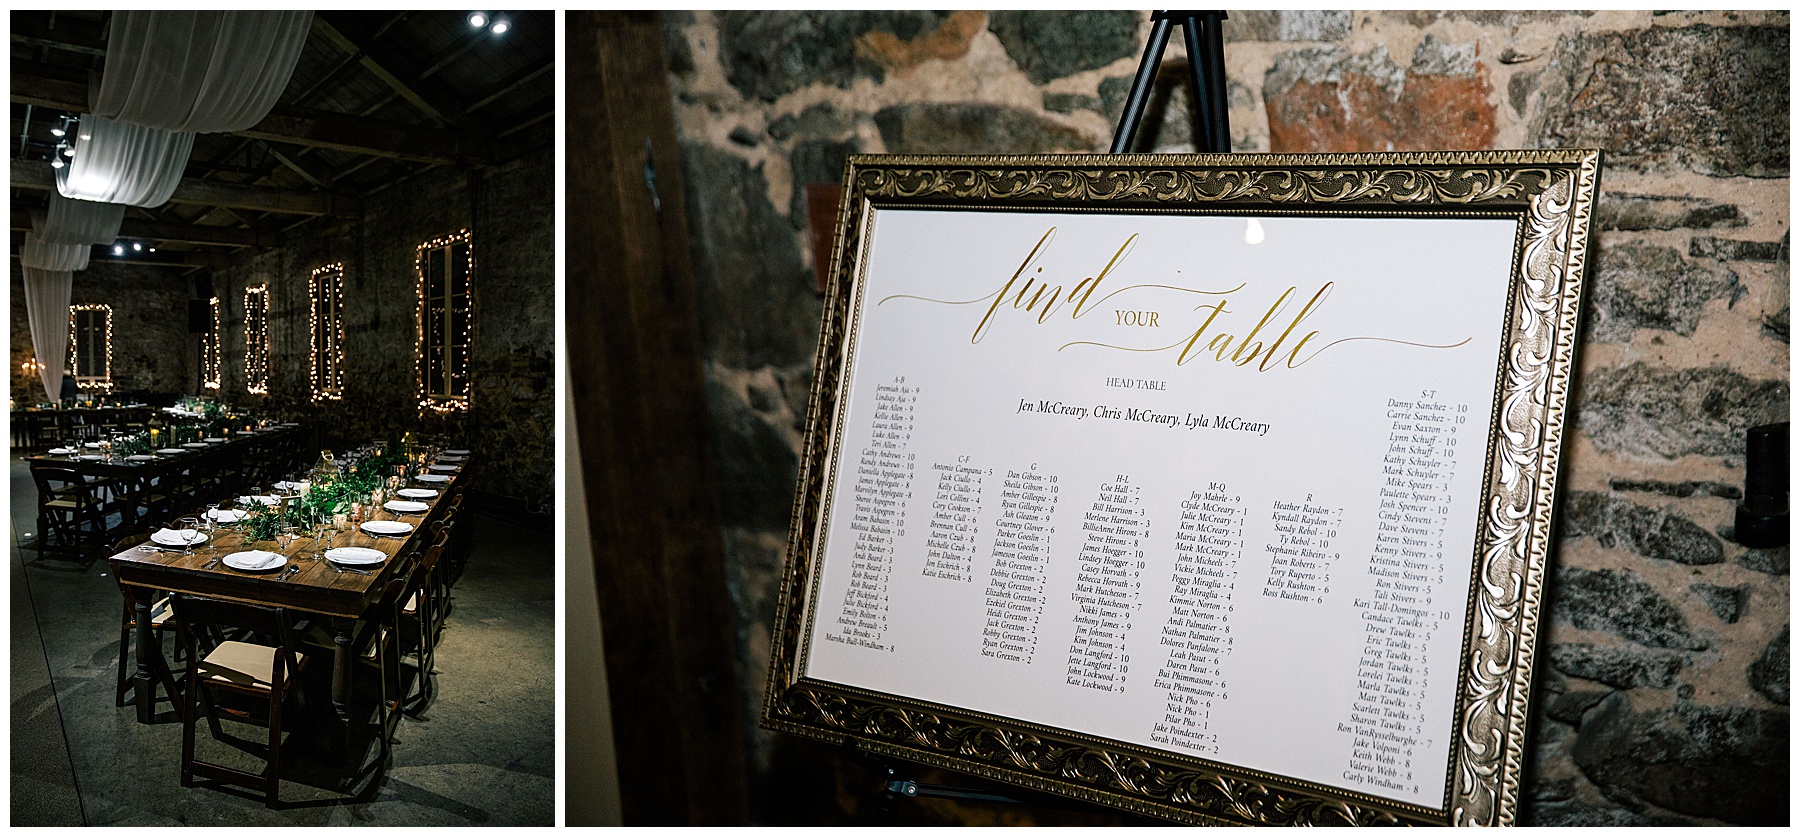 find
YOUR
table
HEAD TABLE
Jen McCreary, Chris McCreary, Lyla McCreary
A-B
Jeremiah Aja - 9
Lindsay Aja - 9
Jake Allen - 9
Kellie Allen - 9
Laura Allen - 9
Luke Allen - 9
Teri Allen - 7
Cathy Andrews - 10
Randy Andrews - 10
Daniella Applegate - 8
James Applegate - 8
Marrilyn Applegate - 8
Sheree Aspegren - 6
Travis Aspegren - 6
Aram Babasin - 10
Melissa Babasin - 10
Ed Barker - 3
Judy Barker - 3
Andi Beard - 3
Lynn Beard - 3
Rob Beard - 3
Rob Beard - 3
Jeff Bickford - 4
Julie Bickford - 4
Emily Bolton - 6
Andrew Breault - 5
Ida Brooks - 3
Marsha Bull-Windham - 8
C-F
Antonio Campana - 5
Jack Ciullo - 4
Kelly Ciullo - 4
Lori Collins - 4
Cory Cookson - 7
Amber Cull - 6
Brennan Cull - 6
Aaron Czub - 8
Michelle Czub - 8
John Dalton - 4
Jon Eschrich - 8
Katie Eschrich - 8
G
Dan Gibson - 10
Sheila Gibson - 10
Amber Gillespie - 8
Ryan Gillespie - 8
Ash Gleaton - 9
Courtney Glover - 6
Parker Goeslin - 1
Jackson Goeslin - 1
Jameson Goeslin - 1
Bob Grexton - 2
Debbie Grexton - 2
Doug Grexton - 2
Elizabeth Grexton -2
Ezekiel Grexton - 2
Heidi Grexton - 2
Jack Grexton - 2
Robby Grexton - 2
Ryan Grexton - 2
Sara Grexton - 2
H-L
Cot Hall - 7
Neil Hall - 7
Bill Harrison - 3
Merlene Harrison - 3
BillieAnne Hirons - 8
Steve Hirons - 8
James Hoegger - 10
Lindsey Hoegger - 10
Casey Horvath - 9
Rebecca Horvath - 9
Mark Hutcheson - 7
Virginia Hutcheson - 7
Nikki James - 9
Anthony James - 9
Jim Johnson - 4
Kim Johnson - 4
Don Langford - 10
Jette Langford - 10
John Lockwood - 9
Kate Lockwood - 9
M-Q
Joy Mahrle - 9
Clyde McCreary - 1
Julie McCreary - 1
Kim McCreary - 1
Maria McCreary - 1
Mark McCreary - 1
John Micheels - 7
Vickie Micheels - 7
Peggy Miraglia - 4
Ray Miraglia - 4
Kimmie Norton - 6
Matt Norton - 6
Andi Palmatier - 8
Nathan Palmatier - 8
Dolores Panfalone - 7
Leah Pasut - 6
Daren Pasut - 6
Bui Phimmasone - 6
Erica Phimmasone - 6
Nick Pho - 6
Nick Pho - 1
Pilar Pho - 1
Jake Poindexter - 2
Sarah Poindexter - 2
R
Heather Raydon - 7
Kyndall Raydon - 7
Sandy Rebol - 10
Ty Rebol - 10
Stephanie Ribeiro - 9
Joan Roberts - 7
Tory Ruperto - 5
Kelly Rushton - 6
Ross Rushton - 6
S-T
Danny Sanchez - 10
Carrie Sanchez - 10
Evan Saxton - 9
Lynn Schuff - 10
John Schuff - 10
Kathy Schuyler - 7
Mark Schuyler - 7
Mike Spears - 3
Paulette Spears - 3
Josh Spencer - 10
Cindy Stevens - 7
Dave Stevens - 7
Karen Stivers - 5
Kenny Stivers - 9
Kristina Stivers - 5
Madison Stivers - 5
Ron Stivers -5
Tali Stivers - 9
Kari Tall-Domingos - 10
Candace Tawlks - 5
Drew Tawlks - 5
Eric Tawlks - 5
Greg Tawlks - 5
Jordan Tawlks - 5
Lorelei Tawlks - 5
Marla Tawlks - 5
Matt Tawlks - 5
Scarlett Tawlks - 5
Sharon Tawlks - 5
Ron VanRysselburghe - 7
Jake Volponi -6
Keith Webb - 8
Valerie Webb - 8
Carly Windham - 8